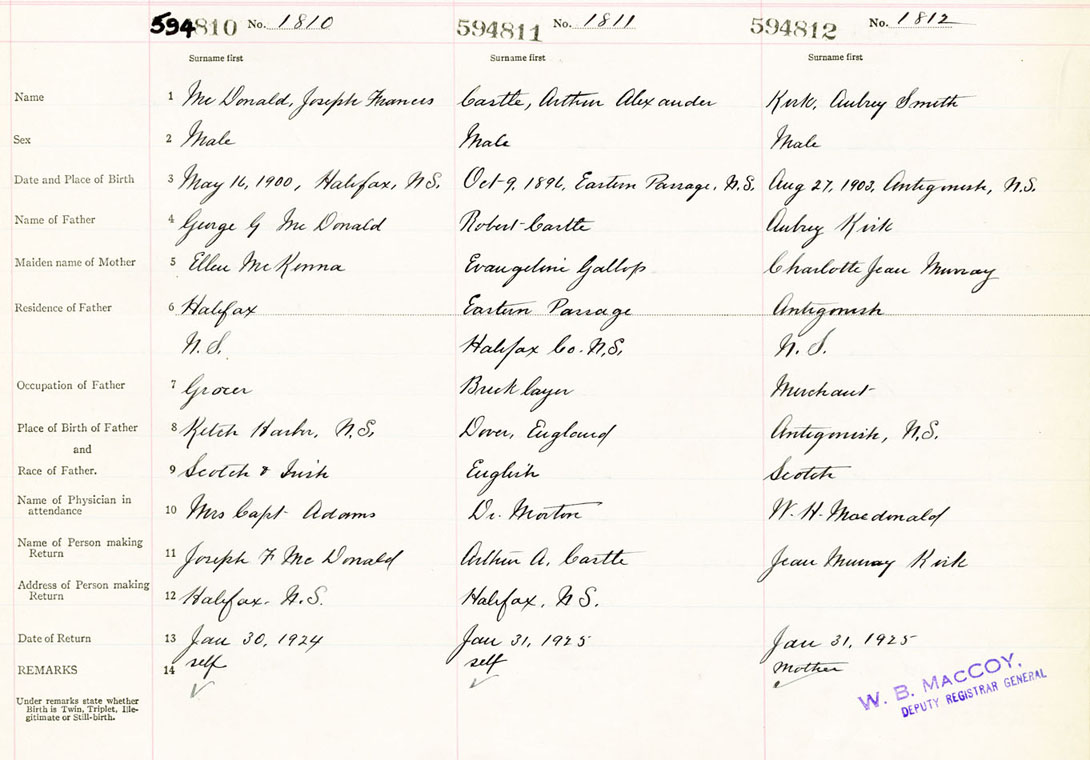 594810 No. 1810 594811 No. 1811 594812 No. 1812
Surname first Surname first Surname first
Name 1 Mc Donald, Joseph Francis Castle, Arthur Alexander Kirk, Aubrey Smith
Sex 2 Male Male Male
Date and Place of Birth 3 May 16, 1900, Halifax, N.S. Oct 9, 1896, Eastern Passage, N.S. Aug 27, 1903, Antigonish, N.S.
Name of Father 4 George G Mc Donald Robert Castle Aubrey Kirk
Maiden name of Mother 5 Ellen McKenna Evangeline Gallop Charlotte Jean Murray
Residence of Father 6 Halifax Eastern Passage Antigonish
N.S. Halifax Co. N.S. N.S.
Occupation of Father 7 Grocer Bricklayer Merchant
Place of Birth of Father 8 Ketch Harbor, N.S. Dover, England Antigonish, N.S.
and
Race of Father. 9 Scotch & Irish English Scotch
Name of Physician in
attendance 10 Mrs Capt Adams Dr. Morton W. H. Macdonald
Name of Person making
Return 11 Joseph F Mc Donald Arthur A. Castle Jean Murray Kirk
Address of Person making
Return 12 Halifax. N.S. Halifax, N S.
Date of Return 13 Jan 30, 1924 Jan 31, 1925 Jan 31, 1925
REMARKS 14 self self Mother
Under remarks state whether
Birth is Twin, Triplet, Ille-
gitimate or Still-birth.
W. B. MACCOY,
DEPUTY REGISTRAR GENERAL